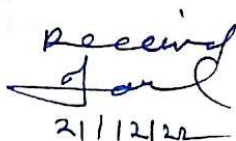 Received
21/12/22